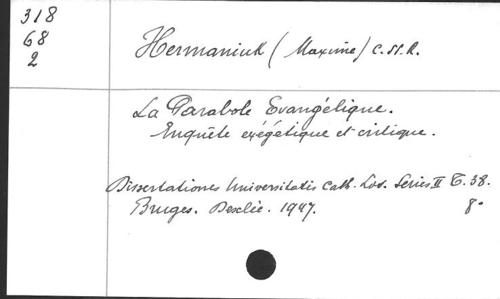 318
68
2
Hermaniuk (Maxime) C.SS.R.
La Parabole Evangélique.
Enquête exégétique et critique.
Dissertationes Universitatis Cath. Lov. Series II T. 38.
Bruges. Desclée. 1947. 8°